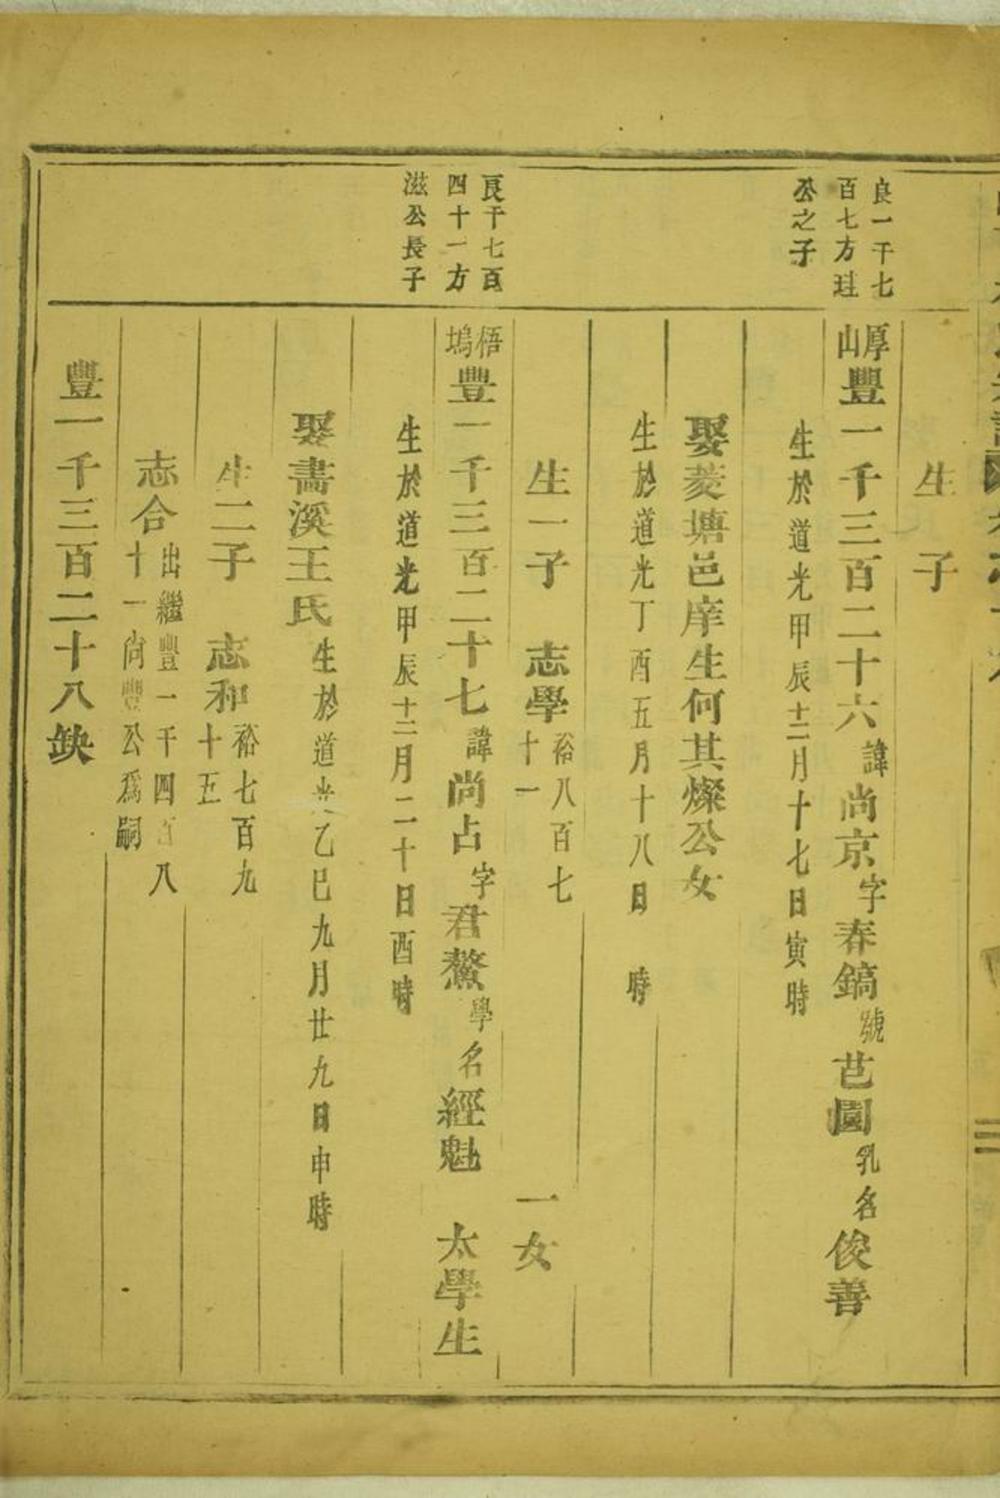 生　子
良一千七
百七方珪
公之子
厚山豐一千三百二十六諱尚京字春鎬號芭園乳名俊善
生於道光甲辰十二月十七日寅時
娶菱塘邑庠生何其燦公女
生於道光丁酉五月十八日　時
生一子　志學裕八百七十一　一女
良千七百
四十一方
滋公長子
梧塢豐一千三百二十七諱尚占字君鰲學名經魁　太學生
生於道光甲辰十二月二十日酉時
娶畵溪王氏生於道光乙巳九月廿九日申時
生二子　志和裕七百九十五
志合出繼豐一千四百八十一尚豐公爲嗣
豐一千三百二十八缺